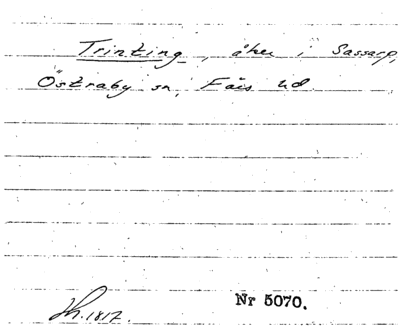 Trinting, åker i Sassarp,
Östraby sn, Färs hd.
Nr 5070.
Jh. 1817.